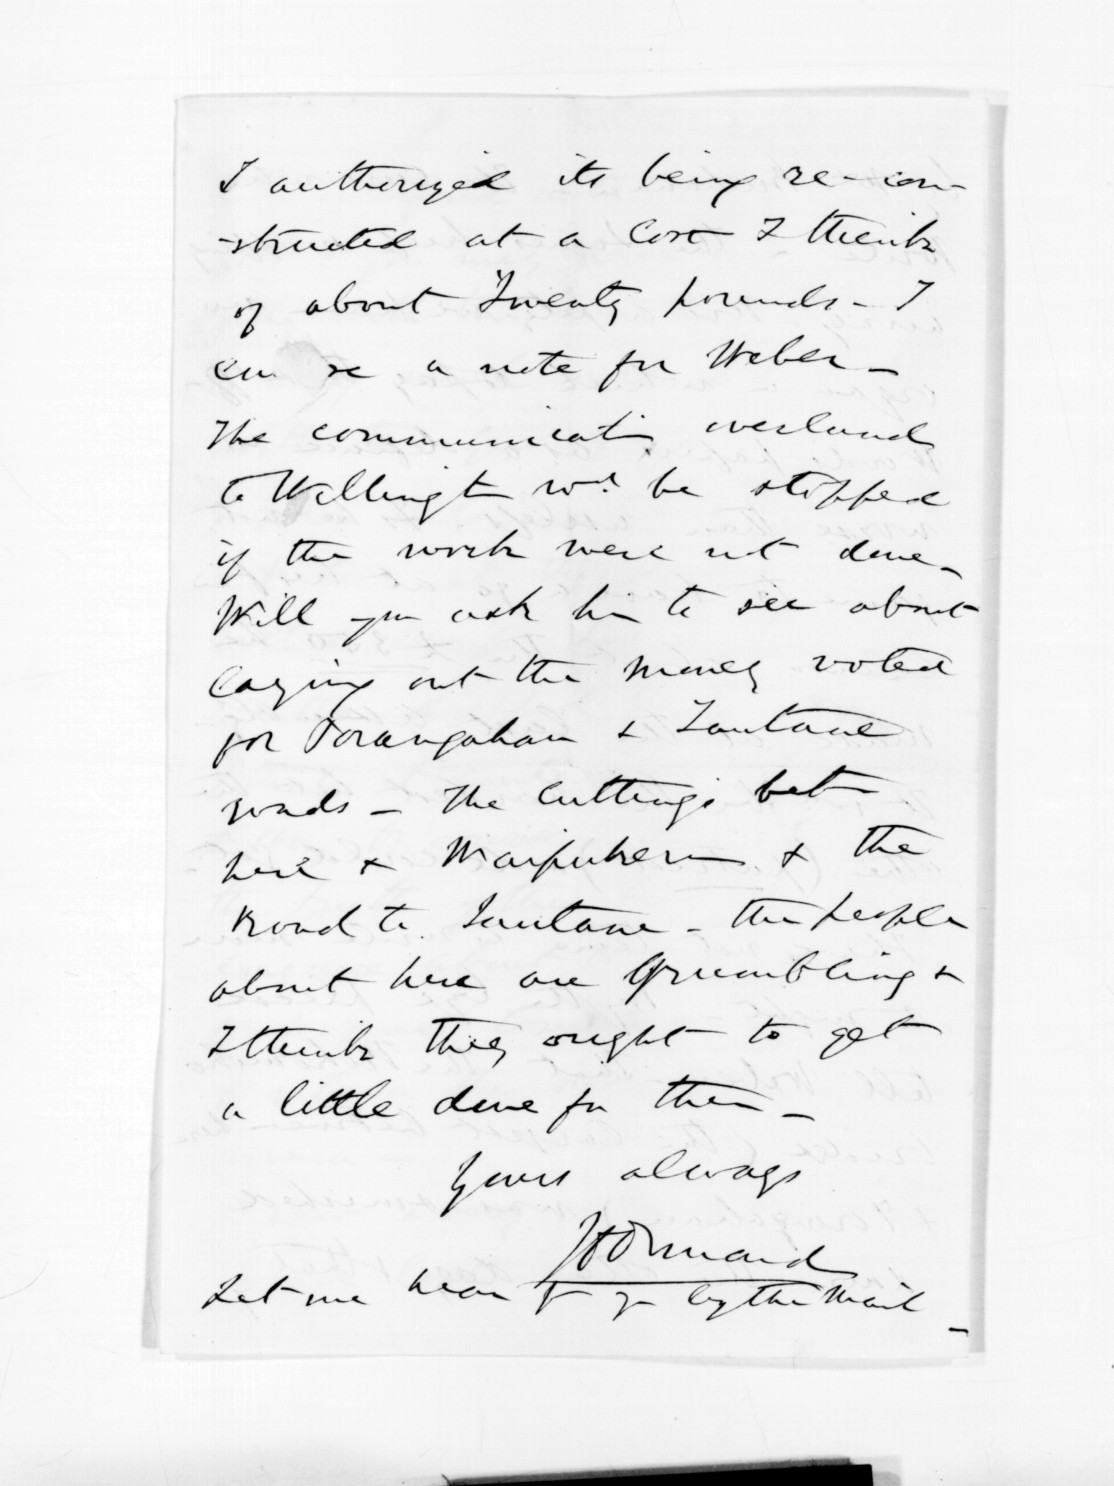 I authorized its being re-con-
-structed at a Cost I think
of about Twenty pounds - I
a note for Weber -
The communication overland
to Wellington wd. be stopped
if the work were not done -
Will you ask him to see about
laying out the money voted
for Porangahau & Tautane
roads - The Cuttings bet
here & Waipukurau & the
Road to Tautane - the people
about here are Grumbling &
I think they ought to get
a little done for them -
Yours always
JD Ormond
Let me hear fr yr by the Mail -